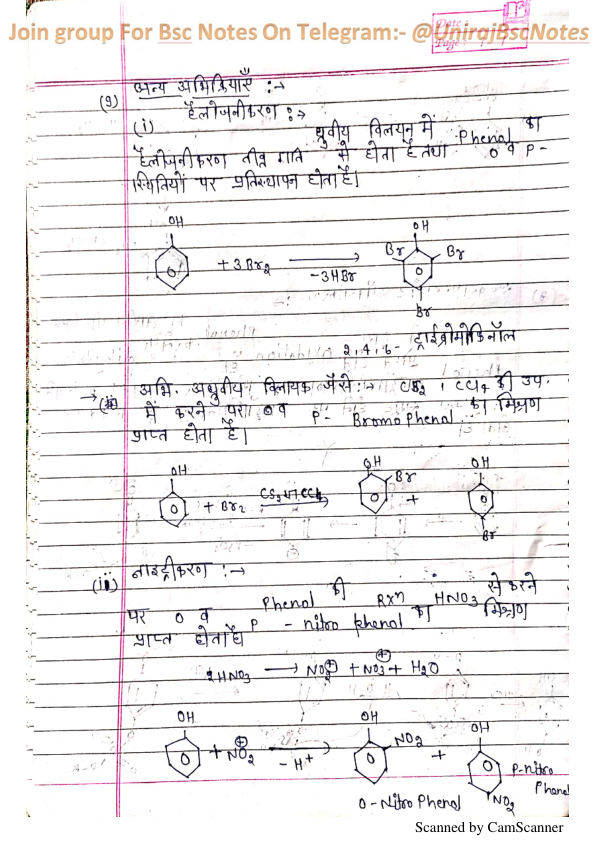 Join group For Bsc Notes On Telegram:- @UnirajBscNotes
Date
Page
(9) अन्य अभिक्रियाएँ :→
(i) हैलोजनीकरण :→
ध्रुवीय विलयन में Phenol का
हैलोजनीकरण तीव्र गति से होता है तथा o व p-
स्थितियों पर प्रतिस्थापन होता है।
OH
+ 3Br₂ → -3HBr
OH
Br Br
Br
2,4,6- ट्राईब्रोमोफिनॉल
→(ii) अभि. अध्रुवीय विलायक जैसे:→ CS₂, CCl₄ की उप.
में करने पर o व p- Bromo Phenol का मिश्रण
प्राप्त होता है।
OH
+ Br₂ CS₂ या CCl₄ →
OH
Br
+
OH
Br
(iii) नाइट्रीकरण :→
Phenol की Rxⁿ HNO₃ से करने
पर o व p - nitro phenol का मिश्रण
प्राप्त होता है।
2HNO₃ → NO₂⊕ + NO₃⊕ + H₂O
OH
+ NO₂⊕ → -H⁺
OH
NO₂
+
OH
NO₂
O-Nitro Phenol
P-nitro
Phenol
Scanned by CamScanner